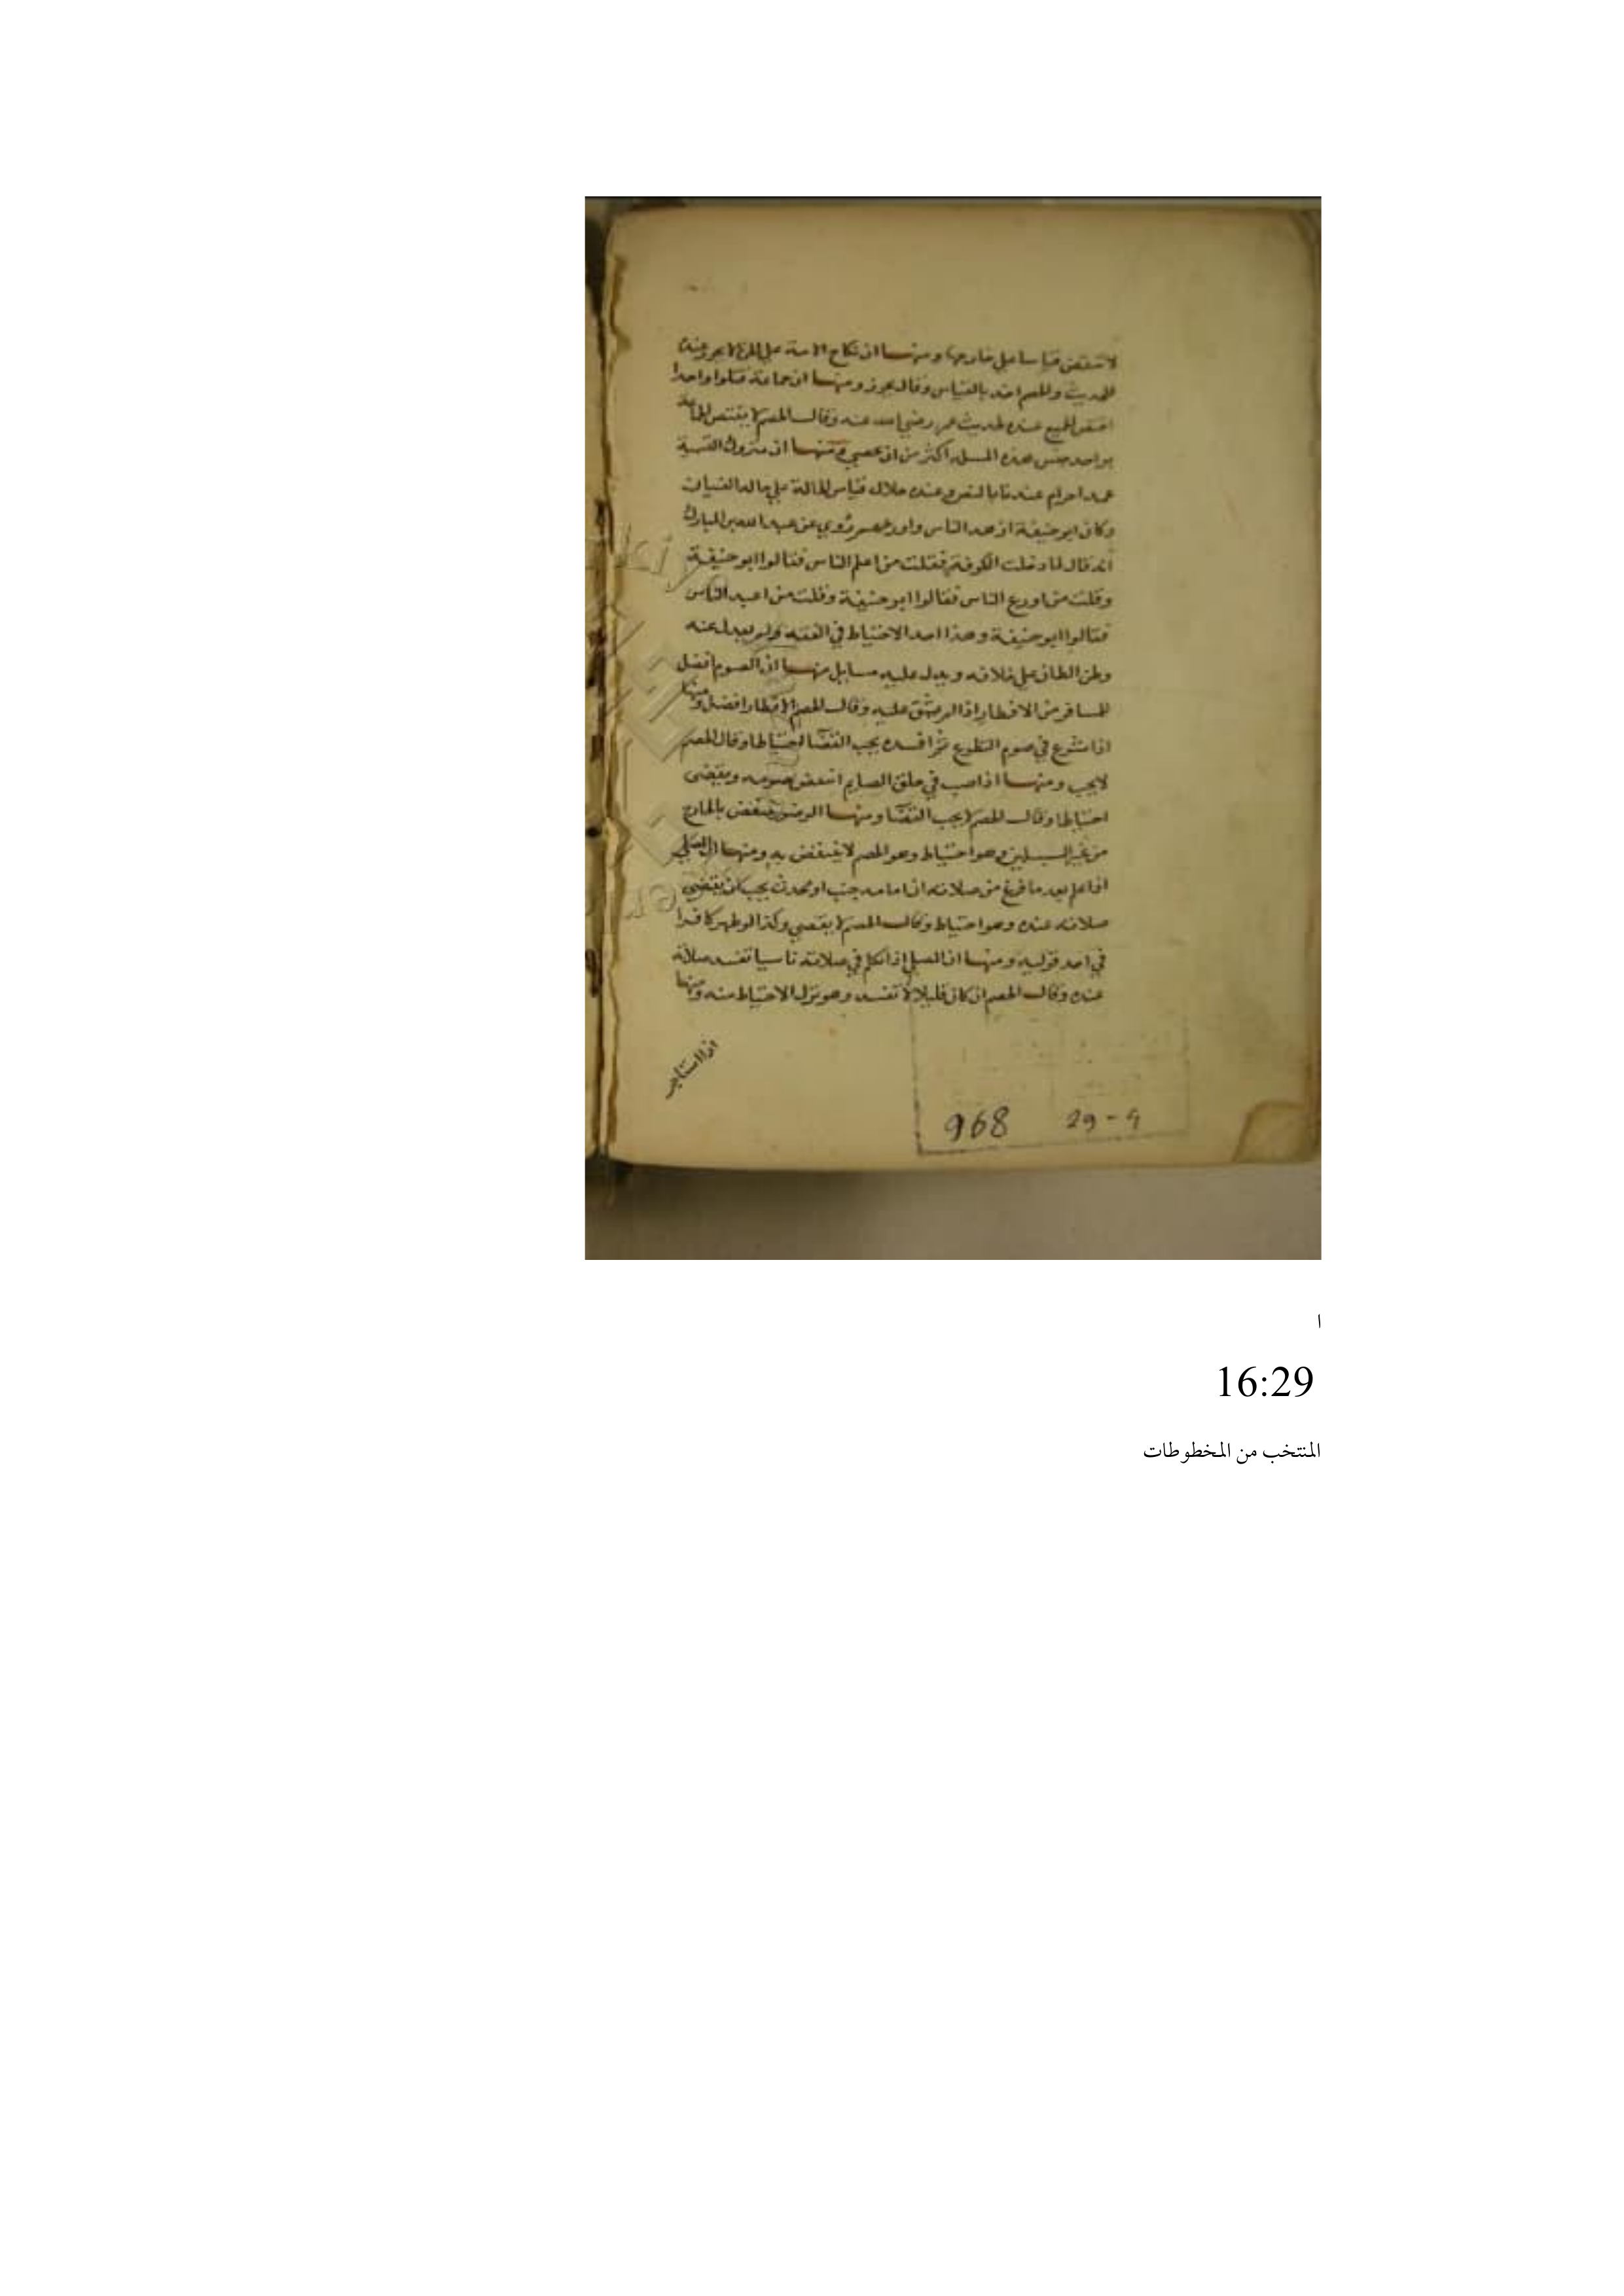 لا تنتقض قياسا على خارجها ومنها ان نكاح الامة على الحرة لا يجوز عنده
للحديث والخصم اخذ بالقياس وقال يجوز ومنها ان جماعة قتلوا واحدا
اقتص الجميع عنده لحديث عمر رضي الله عنه وقال الخصم لا يقتص الجماعة
بواحد جنس هذه المسله اكثر من ان يحصي ومنها ان متروك التسمية
عمدا حرام عندنا بالنص وعنده حلال قياس الحالة على حالة النسيان
وكان ابو حنيفة ازهد الناس واورعهم روي عن عبد الله بن المبارك
انه قال لما دخلت الكوفة فقلت من اعلم الناس فقالوا ابو حنيفة
وقلت من اورع الناس فقالوا ابو حنيفة وقلت من اعبد الناس
فقالوا ابو حنيفة وهذا اخذ الاحتياط في الفقه ولم يعدل عنه
وظن الظان على خلافه ويدل عليه مسايل منها ان الصوم افضل
للمسافر من الافطار اذا لم يشق عليه وقال الخصم الافطار افضل ومنها
اذا شرع في صوم التطوع ثم افسده يجب القضا احتياطا وقال الخصم
لا يجب ومنها اذا صب في حلق الصايم انتقض صومه ويقضى
احتياطا وقال الخصم لا يجب القضا ومنها الوضوء ينتقض بالخارج
من غير السبيلين وهو احتياط وهو الخصم لا ينتقض به ومنها ان المصلي
اذا علم بعد ما فرغ من صلاته ان امامه جنب او محدث يجب ان يقضي
صلاته عنده وهو احتياط وقال الخصم لا يقضي وكذا لو ظهر كافرا
في احد قوليه ومنها ان المصلي اذا تكلم في صلاته ناسيا تفسد صلاته
عنده وقال الخصم ان كان قليلا لا تفسد وهو ترك الاحتياط منه ومنها
اذا استاجر
968 29-9
ا
16:29
المنتخب من المخطوطات